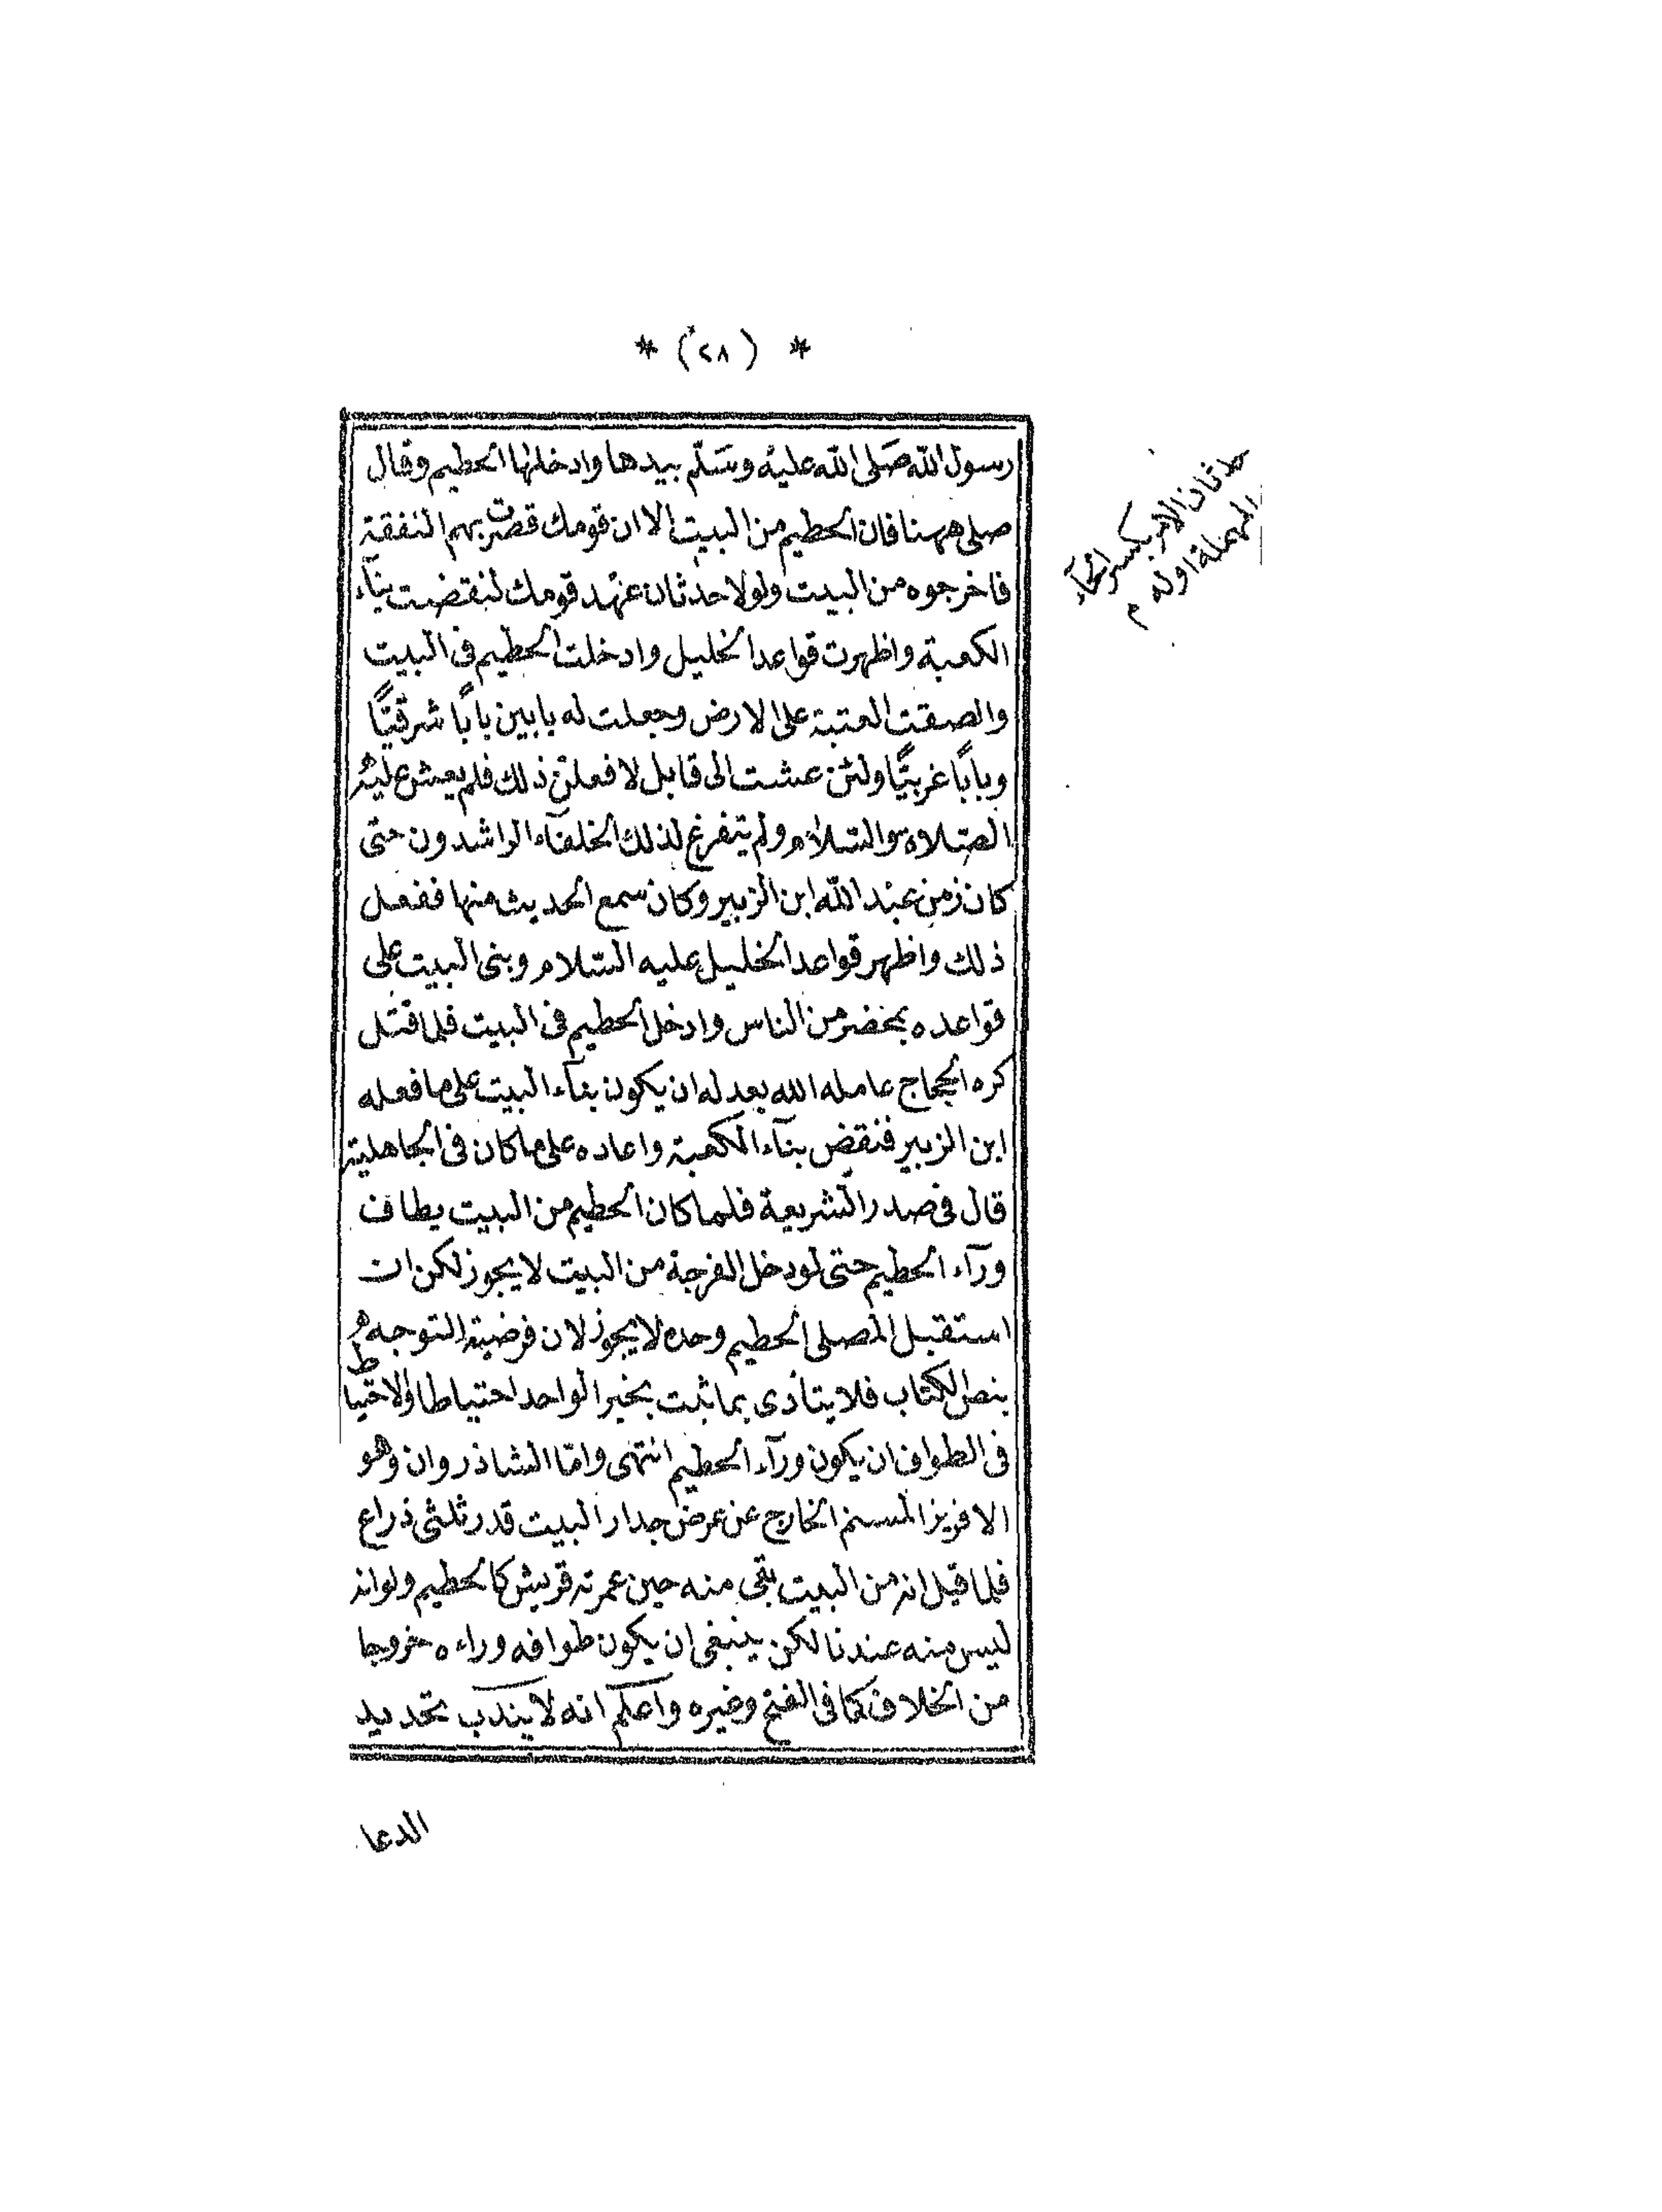 * (٢٨) *
رسول الله صلى الله عليه وسلم بيدها وادخلها الحطيم وقال
صلى ههنا فان الحطيم من البيت الا ان قومك قصرت بهم النفقة
فاخرجوه من البيت ولولا حدثان عهد قومك لنقضت بناء
الكعبة واظهرت قواعد الخليل وادخلت الحطيم فى البيت
والصقت العتبة على الارض وجعلت له بابين بابًا شرقيًّا
وبابًا غربيًّا ولئن عشت الى قابل لافعلن ذلك فلم يعش عليه
الصلاة والسلام ولم يتفرغ لذلك الخلفآء الراشدون حتى
كان زمن عبد الله ابن الزبير وكان سمع الحديث منها ففعل
ذلك واظهر قواعد الخليل عليه السلام وبنى البيت على
قواعده بمحضر من الناس وادخل الحطيم فى البيت فلما قتل
كره الحجاج عامله الله بعدله ان يكون بنآء البيت على ما فعله
ابن الزبير فنقض بنآء الكعبة واعاده على ما كان فى الجاهلية
قال فى صدر الشريعة فلما كان الحطيم من البيت يطاف
ورآء الحطيم حتى لو دخل الفرجة من البيت لا يجوز لكن ان
استقبل المصلى الحطيم وحده لا يجوز لان فرضية التوجه
بنص الكتاب فلا يتأدى بما ثبت بخبر الواحد احتياطا والاحتياط
فى الطواف ان يكون ورآء الحطيم انتهى واما الشاذروان وهو
الافريز المسنم الخارج عن عرض جدار البيت قدر ثلثى ذراع
فلما قيل انه من البيت بقى منه حين عمرته قريش كالحطيم ولو انه
ليس منه عندنا لكن ينبغى ان يكون طوافه وراءه خروجا
من الخلاف كما فى الفتح وغيره واعلم انه لا يندب تحديد
الدعا
حدثان الامر بكسر الحآء
المهملة اوله م